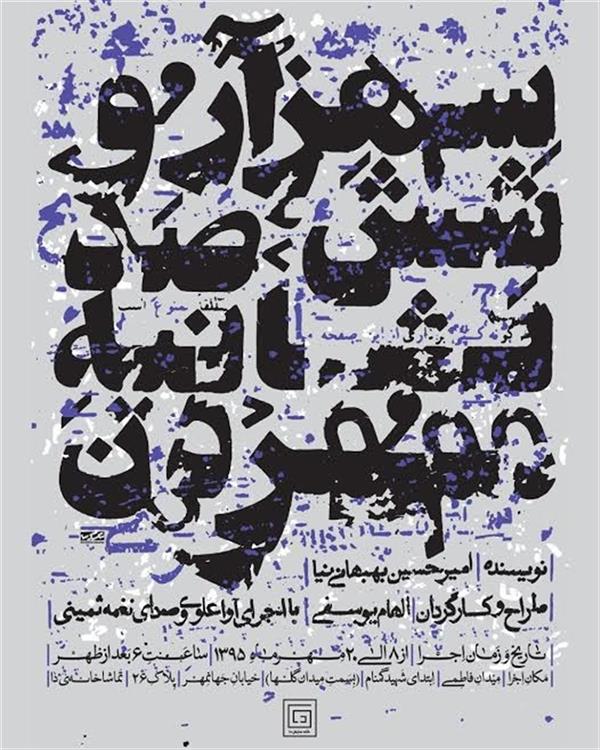 سه‌هزار و
شش صد
ثانیه
مهر من
نویسنده | امیرحسین بهبهانی‌نیا |
طراح و کارگردان | الهام یوسفی | با اجرای آوا علوی و صدای نغمه ثمینی |
تاریخ و زمان اجرا | از ۸ الی ۲۰ مهر ماه ۱۳۹۵ | ساعت ۶ بعد از ظهر |
مکان اجرا | میدان فاطمی | ابتدای شهید گمنام | (به سمت میدان گلها) | خیابان جهانمهر | پلاک ۲۶ | تماشاخانه‌ی دا |